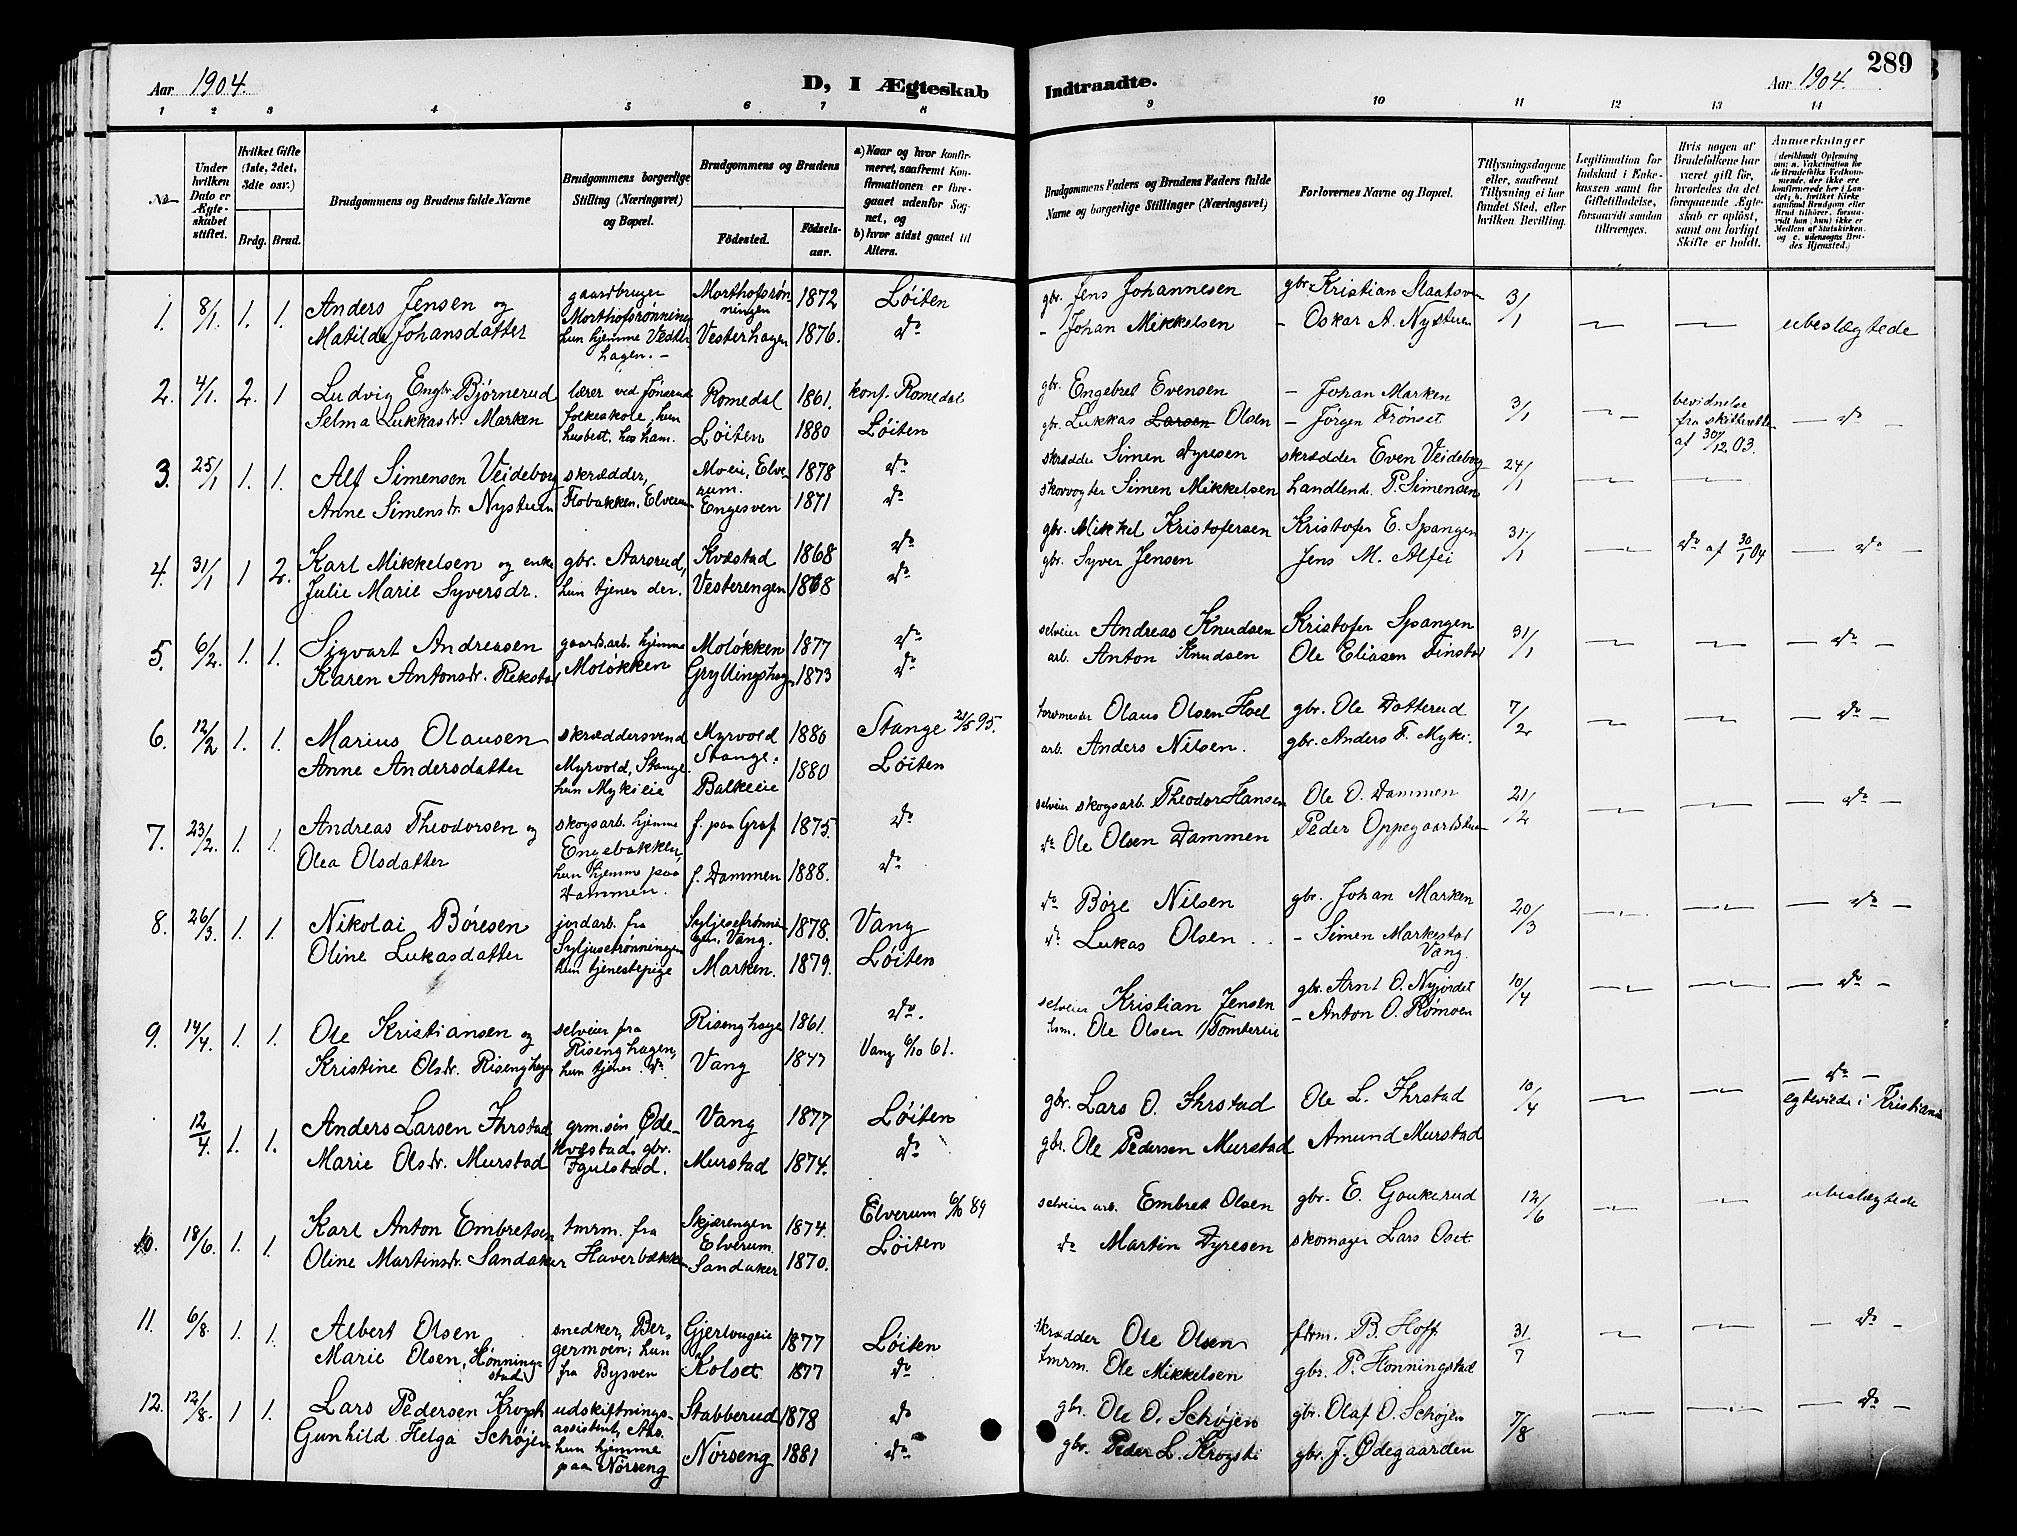 289
Aar 1904.
D, I Ægteskab
Indtraadte.
Aar 1904.
1 2 3 4 5 6 7 8
9 10 11 12 13 14
No
Under hvilken Dato er Ægteskabet stiftet.
Hvilket Gifte (1ste, 2det, 3die osv.)
Brdg. Brud.
Brudgommens og Brudens fulde Navne
Brudgommens borgerlige Stilling (Næringsvei) og Bopæl.
Brudgommens og Brudens
Fødested.
Fødselsaar.
a) Naar og hvor konfirmeret, saafremt Konfirmationen er foregaaet udenfor Sognet, og
b) hvor sidst gaaet til Alters.
Brudgommens Faders og Brudens Faders fulde Navne og borgerlige Stillinger (Næringsvei)
Forlovernes Navne og Bopæl.
Tillysningsdagene eller, saafremt Tillysning ei har fundet Sted, efter hvilken Bevilling.
Legitimation for Indskud i Enkekassen samt for Giftetilladelse, forsaavidt saadan tiltrænges.
Hvis nogen af Brudefolkene har været gift før, hvorledes da det foregaaende Ægteskab er opløst, samt om lovligt Skifte er holdt.
Anmerkninger
(deriblandt Oplysning om: a. Vakcination for de Brudefolks Vedkommende, der ikke ere konfirmerede her i Landet; b. hvilket Kirkesamfund Brudgom eller Brud tilhører, forsaavidt han (hun) ikke er Medlem af Statskirken, og c. udensogns Brudes Hjemsted.)
1. 8/1 1. 1. Anders Jensen og gaardbruger Morthofsrønningen 1872 Løiten
Matilde Johansdatter Morthofsrønningen hun hjemme Vesterhagen. Vesterhagen 1876. do
gbr. Jens Johannesen gbr. Kristian Staatsven 3/1
- Johan Mikkelsen - Oskar A. Nystuen ubeslægtede
2. 4/1. 2. 1 Ludvig Engbr. Bjørnerud lærer ved Jønsrud folkeskole, hun husbest. hos ham. Romedal 1861. konf. Romedal
Selma Lukkasdr. Marken Løiten 1880 Løiten
gbr. Engebret Evensen - Johan Marken 3/1
gbr. Lukkas Larsen Olsen - Jørgen Frønset do
bevidnelse fra skifteretten af 30/12 03.
3. 25/1 1. 1. Alf Simensen Veideborg skrædder, Moeie, Elverum. 1878 do
Anne Simensdr. Nystuen Flobakken, Elverum Engesven 1871 do
skrædder Simen Dyresen skrædder Even Veideborg 24/1
skovvogter Simen Mikkelsen Landlend. P. Simensen
4. 31/1 1 2. Karl Mikkelsen og enke gbr. Aarsrud, Kvæstad 1868 do
Julie Marie Syversdr. hun tjener der. Vesterengen 1868 do
gbr. Mikkel Kristofersen Kristofer E. Spangen 31/1 do af 30/1 04 do
gbr. Syver Jensen Jens M. Alfei
5. 6/2. 1. 1. Sigvart Andreasen gaardsarb. hjemme Moløkken 1877 do
Karen Antonsdr. Rekstad Moløkken Gryllingshagen 1873 do
selveier Andreas Knudsen Kristofer Spangen 31/1 do
arb. Anton Knudsen Ole Eliasen Finstad
6. 12/2 1. 1. Marius Olausen skræddersvend Myrvold Stange. 1880 Stange 21/5 95.
Anne Andersdatter Myrvold, Stange. hun Mykieie Balkeeie 1880 Løiten
Olaus Olsen Hoel gbr. Ole Dotterud 7/2 do
arb. Anders Nilsen. gbr. Anders F. Myki.
7. 23/2. 1. 1. Andreas Theodorsen og skogsarb. hjemme Engebakken, f. paa Grøf 1875. do
Olea Olsdatter hun hjemme paa Dammen. f. Dammen 1888. do
selveier skogsarb. Theodor Hansen Ole O. Dammen 21/2 do
do Ole Olsen Dammen Peder
8. 26/3. 1. 1. Nikolai Børesen jordarb. fra Vang. 1878. Vang
Oline Lukasdatter hun tjenestepige Marken. 1879. Løiten
do Børe Nilsen gbr. Johan Marken 20/3 do
do Lukas Olsen - Simen Markestad Vang.
9. 14/4. 1. 1. Ole Kristiansen og selveier fra Risenghagen, Risenghage 1861. do.
Kristine Olsdr. Risenghagen hun tjener. do Vang 1847 Vang 6/10 61.
selveier Kristian Jensen gbr. Arnt O. Nyjordet 10/4 do
hsm. Ole Olsen Tombereie - Anton O. Rømoen
12/4 1. 1. Anders Larsen Ihrstad grm.søn Ødekvæstad, gbr. Fgulstad. Vang 1877 Løiten
Marie Olsdr. Murstad Murstad 1874. do
gbr. Lars O. Ihrstad Ole L. Ihrstad 10/4 do
gbr. Ole Pedersen Murstad Amund Murstad egteviede i Kristiania
10. 18/6. 1. 1. Karl Anton Embretsen tmrm. fra Skjærengen Elverum 1874. Elverum 6/10 89
Oline Martinsdr. Sandaker Haverbækken Sandaker 1870. Løiten
selveier arb. Embret Olsen gbr. E. Goukerud 12/6 ubeslægtede
do Martin Dyresen skomager Lars Oset
11. 6/8. 1. 1. Albert Olsen snedker, Bergermoen; hun fra Bysven Gjerlougeie 1877 Løiten
Marie Olsen, Hønningstad Kolset 1877 do
skrædder Ole Olsen frm. B. Hoff 31/7 do
tmrm. Ole Mikkelsen gbr. P. Hønningstad
12. 12/8. 1 1. Lars Pedersen Krogh udskiftningsassistent, Aas. hun hjemme paa Nørseng Stabberud 1878 do
Gunhild Helga Schøjen Nørseng 1881 do
gbr. Ole O. Schøjen gbr. Olaf O. Schøjen 7/8 do
gbr. Peder L. Krogski gbr. J. Ødegaarden